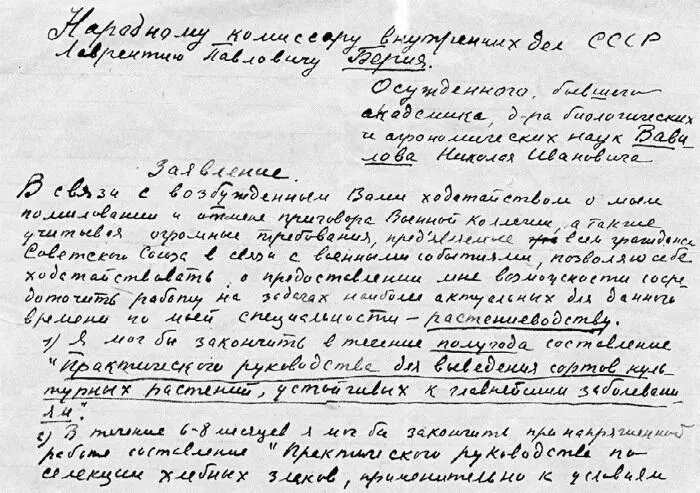 Народному комиссару внутренних дел СССР
Лаврентию Павловичу Берия.
Осужденного, бывшего
академика, д-ра биологических
и агрономических наук Вави
лова Николая Ивановича
Заявление.
В связи с возбужденным Вами ходатайством о моем
помиловании и отмене приговора Военной Коллегии, а также
учитывая огромные требования, пред'явленные всем гражданам
Советского Союза в связи с военными событиями, позволяю себе
ходатайствовать о предоставлении мне возможности сосре
доточить работу на задачах наиболее актуальных для данного
времени по моей специальности – растениеводству.
1) Я мог бы закончить в течение полугода составление
"Практического руководства для выведения сортов куль
турных растений, устойчивых к главнейшим заболевани
ям".
2) В течение 6-8 месяцев я мог бы закончить при напряженной
работе составление "Практического руководства по
селекции хлебных злаков, применительно к условиям